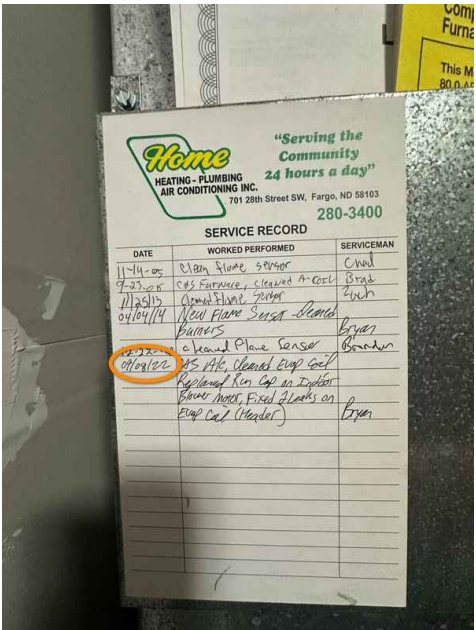 Comp
Furna
This M
80.0 AF
Home
HEATING - PLUMBING
AIR CONDITIONING INC.
"Serving the
Community
24 hours a day"
701 28th Street SW, Fargo, ND 58103
280-3400
SERVICE RECORD
DATE WORKED PERFORMED SERVICEMAN
11-14-05 Clean flame sensor Chad
9-23-08 C&S Furnace, cleaned A-Coil Brad
11/25/13 Cleaned Flame Sensor Zach
04/04/14 New Flame Sensor Cleaned
burners Bryan
cleaned Flame Sensor Brandon
09/08/22 AS A/C, Cleaned Evap Coil
Replaced Run Cap on Indoor
Blower Motor, Fixed 2 Leaks on
Evap Coil (Header) Bryan